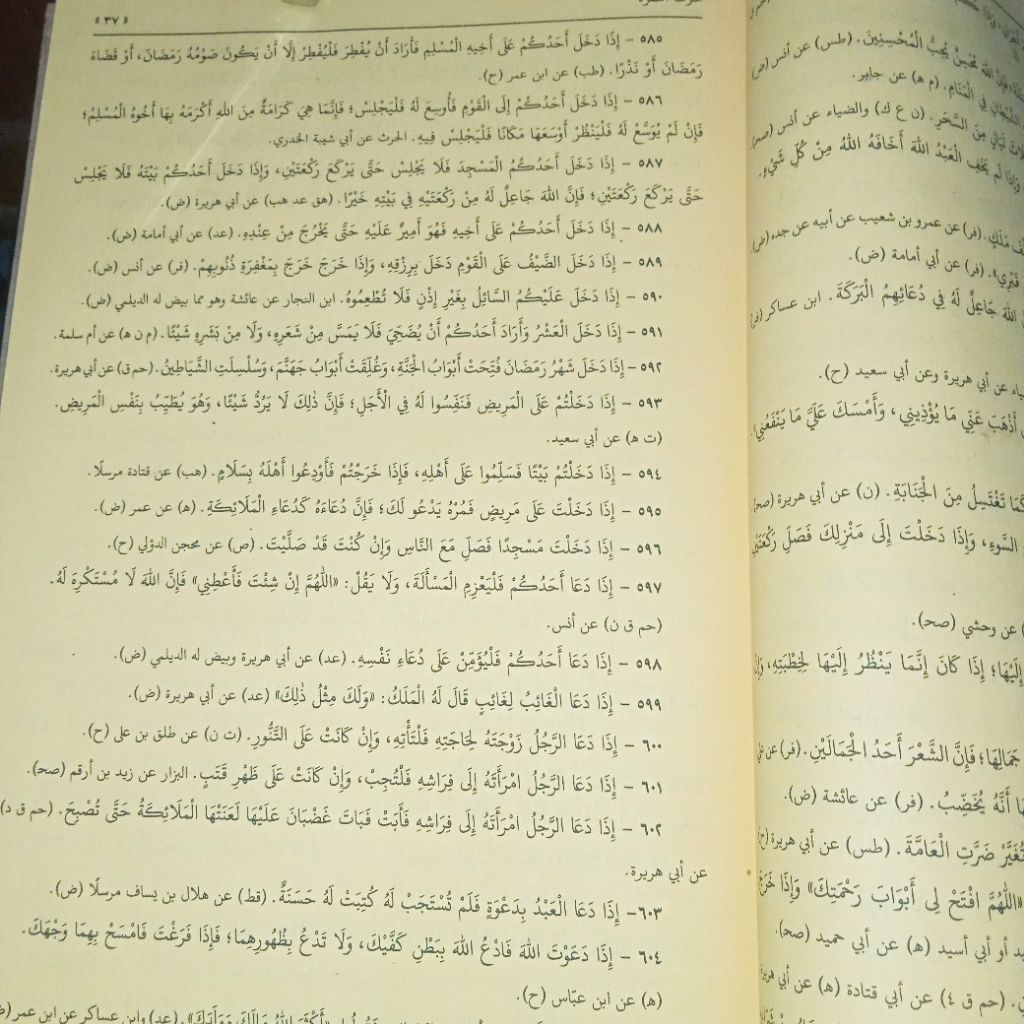 « ٣٧ »
٥٨٥ – إِذَا دَخَلَ أَحَدُكُمْ عَلَى أَخِيهِ الْمُسْلِمِ فَأَرَادَ أَنْ يُفْطِرَ فَلْيُفْطِرْ إِلَّا أَنْ يَكُونَ صَوْمُهُ رَمَضَانَ، أَوْ قَضَاءَ
رَمَضَانَ أَوْ نَذْرًا. (طب) عن ابن عمر (ح).
٥٨٦ – إِذَا دَخَلَ أَحَدُكُمْ إِلَى الْقَوْمِ فَأُوسِعَ لَهُ فَلْيَجْلِسْ؛ فَإِنَّمَا هِيَ كَرَامَةٌ مِنَ اللهِ أَكْرَمَهُ بِهَا أَخُوهُ الْمُسْلِمُ؛
فَإِنْ لَمْ يُوَسَّعْ لَهُ فَلْيَنْظُرْ أَوْسَعَهَا مَكَانًا فَلْيَجْلِسْ فِيهِ. الحرث عن أبي شيبة الخدري.
٥٨٧ – إِذَا دَخَلَ أَحَدُكُمُ الْمَسْجِدَ فَلَا يَجْلِسْ حَتَّى يَرْكَعَ رَكْعَتَيْنِ، وَإِذَا دَخَلَ أَحَدُكُمْ بَيْتَهُ فَلَا يَجْلِسْ
حَتَّى يَرْكَعَ رَكْعَتَيْنِ؛ فَإِنَّ اللهَ جَاعِلٌ لَهُ مِنْ رَكْعَتَيْهِ فِي بَيْتِهِ خَيْرًا. (هق عد هب) عن أبي هريرة (ض).
٥٨٨ – إِذَا دَخَلَ أَحَدُكُمْ عَلَى أَخِيهِ فَهُوَ أَمِيرٌ عَلَيْهِ حَتَّى يَخْرُجَ مِنْ عِنْدِهِ. (عد) عن أبي أمامة (ض).
٥٨٩ – إِذَا دَخَلَ الضَّيْفُ عَلَى الْقَوْمِ دَخَلَ بِرِزْقِهِ، وَإِذَا خَرَجَ خَرَجَ بِمَغْفِرَةِ ذُنُوبِهِمْ. (فر) عن أنس (ض).
٥٩٠ – إِذَا دَخَلَ عَلَيْكُمُ السَّائِلُ بِغَيْرِ إِذْنٍ فَلَا تُطْعِمُوهُ. ابن النجار عن عائشة وهو مما بيض له الديلمي (ض).
٥٩١ – إِذَا دَخَلَ الْعَشْرُ وَأَرَادَ أَحَدُكُمْ أَنْ يُضَحِّيَ فَلَا يَمَسَّ مِنْ شَعَرِهِ، وَلَا مِنْ بَشَرِهِ شَيْئًا. (م ن ه) عن أم سلمة.
٥٩٢ – إِذَا دَخَلَ شَهْرُ رَمَضَانَ فُتِحَتْ أَبْوَابُ الْجَنَّةِ، وَغُلِّقَتْ أَبْوَابُ جَهَنَّمَ، وَسُلْسِلَتِ الشَّيَاطِينُ. (حم ق) عن أبي هريرة.
٥٩٣ – إِذَا دَخَلْتُمْ عَلَى الْمَرِيضِ فَنَفِّسُوا لَهُ فِي الْأَجَلِ؛ فَإِنَّ ذٰلِكَ لَا يَرُدُّ شَيْئًا، وَهُوَ يُطَيِّبُ بِنَفْسِ الْمَرِيضِ.
(ت ه) عن أبي سعيد.
٥٩٤ – إِذَا دَخَلْتُمْ بَيْتًا فَسَلِّمُوا عَلَى أَهْلِهِ، فَإِذَا خَرَجْتُمْ فَأَوْدِعُوا أَهْلَهُ بِسَلَامٍ. (هب) عن قتادة مرسلًا.
٥٩٥ – إِذَا دَخَلْتَ عَلَى مَرِيضٍ فَمُرْهُ يَدْعُو لَكَ؛ فَإِنَّ دُعَاءَهُ كَدُعَاءِ الْمَلَائِكَةِ. (ه) عن عمر (ض).
٥٩٦ – إِذَا دَخَلْتَ مَسْجِدًا فَصَلِّ مَعَ النَّاسِ وَإِنْ كُنْتَ قَدْ صَلَّيْتَ. (ص) عن محجن الدؤلي (ح).
٥٩٧ – إِذَا دَعَا أَحَدُكُمْ فَلْيَعْزِمِ الْمَسْأَلَةَ، وَلَا يَقُلْ: «اَللّٰهُمَّ إِنْ شِئْتَ فَأَعْطِنِي» فَإِنَّ اللهَ لَا مُسْتَكْرِهَ لَهُ.
(حم ق ن) عن أنس.
٥٩٨ – إِذَا دَعَا أَحَدُكُمْ فَلْيُؤَمِّنْ عَلَى دُعَاءِ نَفْسِهِ. (عد) عن أبي هريرة وبيض له الديلمي (ض).
٥٩٩ – إِذَا دَعَا الْغَائِبُ لِغَائِبٍ قَالَ لَهُ الْمَلَكُ: «وَلَكَ مِثْلُ ذٰلِكَ» (عد) عن أبي هريرة (ض).
٦٠٠ – إِذَا دَعَا الرَّجُلُ زَوْجَتَهُ لِحَاجَتِهِ فَلْتَأْتِهِ، وَإِنْ كَانَتْ عَلَى التَّنُّورِ. (ت ن) عن طلق بن علي (ح).
٦٠١ – إِذَا دَعَا الرَّجُلُ امْرَأَتَهُ إِلَى فِرَاشِهِ فَلْتُجِبْ، وَإِنْ كَانَتْ عَلَى ظَهْرِ قَتَبٍ. البزار عن زيد بن أرقم (صحـ).
٦٠٢ – إِذَا دَعَا الرَّجُلُ امْرَأَتَهُ إِلَى فِرَاشِهِ فَأَبَتْ فَبَاتَ غَضْبَانَ عَلَيْهَا لَعَنَتْهَا الْمَلَائِكَةُ حَتَّى تُصْبِحَ. (حم ق د)
عن أبي هريرة.
٦٠٣ – إِذَا دَعَا الْعَبْدُ بِدَعْوَةٍ فَلَمْ تُسْتَجَبْ لَهُ كُتِبَتْ لَهُ حَسَنَةٌ. (قط) عن هلال بن يساف مرسلًا (ض).
٦٠٤ – إِذَا دَعَوْتَ اللهَ فَادْعُ اللهَ بِبَطْنِ كَفَّيْكَ، وَلَا تَدْعُ بِظُهُورِهِمَا؛ فَإِذَا فَرَغْتَ فَامْسَحْ بِهِمَا وَجْهَكَ.
(ه) عن ابن عبّاس (ح).
(عد) وابن عساكر عن ابن عمر
يُحِبُّ الْمُحْسِنِينَ. (طس) عن أنس (ض)
فِي الْمَنَامِ. (م ه) عن جابر.
مِنَ السَّحَرِ. (ن ع ك) والضياء عن أنس (صحـ)
وَإِذَا لَمْ يَخَفِ الْعَبْدُ اللهَ أَخَافَهُ اللهُ مِنْ كُلِّ شَيْءٍ.
(فر) عن عمرو بن شعيب عن أبيه عن جده (ض)
(فر) عن أبي أمامة (ض).
اللهَ جَاعِلٌ لَهُ فِي دُعَائِهِمُ الْبَرَكَةَ. ابن عساكر
عن أبي هريرة وعن أبي سعيد (ح).
أَذْهَبَ عَنِّي مَا يُؤْذِينِي، وَأَمْسَكَ عَلَيَّ مَا يَنْفَعُنِي
كَمَا تَغْتَسِلُ مِنَ الْجَنَابَةِ. (ن) عن أبي هريرة (صحـ)
السَّوْءِ، وَإِذَا دَخَلْتَ إِلَى مَنْزِلِكَ فَصَلِّ
عن وحشي (صحـ).
إِلَيْهَا؛ إِذَا كَانَ إِنَّمَا يَنْظُرُ إِلَيْهَا لِخِطْبَتِهِ،
جَمَالِهَا؛ فَإِنَّ الشَّعْرَ أَحَدُ الْجَمَالَيْنِ. (فر) عن علي
أَنَّهُ يُخَضِّبُ. (فر) عن عائشة (ض).
ضَرَّتِ الْعَامَّةَ. (طس) عن أبي هريرة (ح)
«اَللّٰهُمَّ افْتَحْ لِي أَبْوَابَ رَحْمَتِكَ» وَإِذَا خَرَجَ
أو أبي أسيد (ه) عن أبي حميد (صحـ).
(حم ق ٤) عن أبي قتادة (ه) عن أبي هريرة